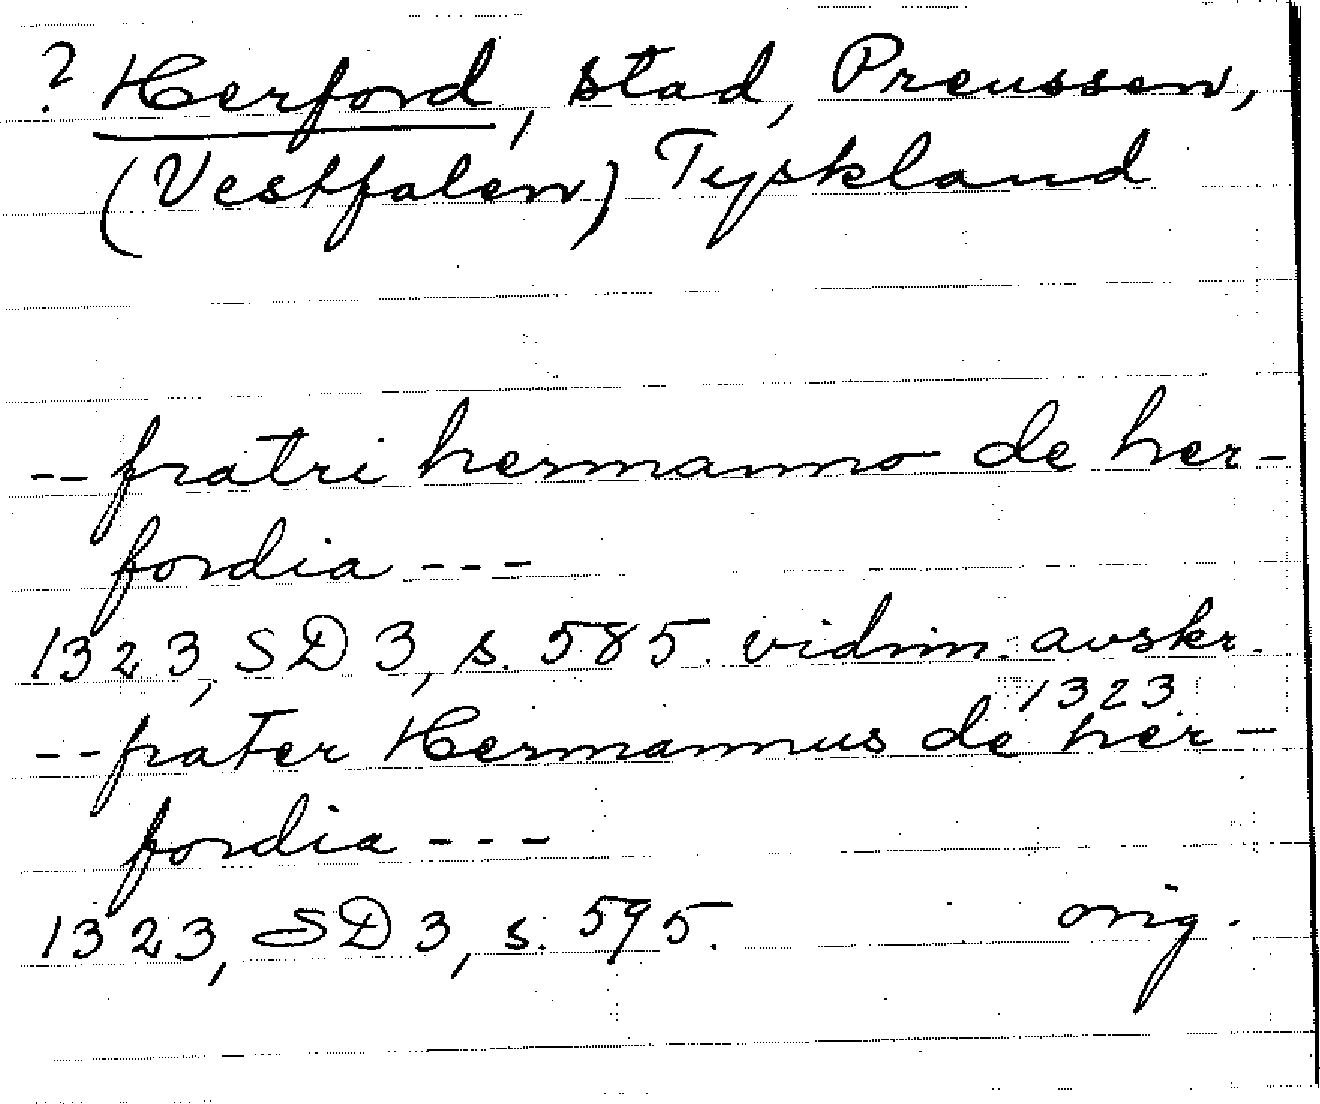 ? Herford, stad, Preussen,
(Vestfalen) Tyskland
-- fratri hermanno de her-
fordia ---
1323, SD 3, s. 585. vidim. avskr.
1323.
-- frater Hermannus de her-
fordia ---
1323, SD 3, s. 595. orig.